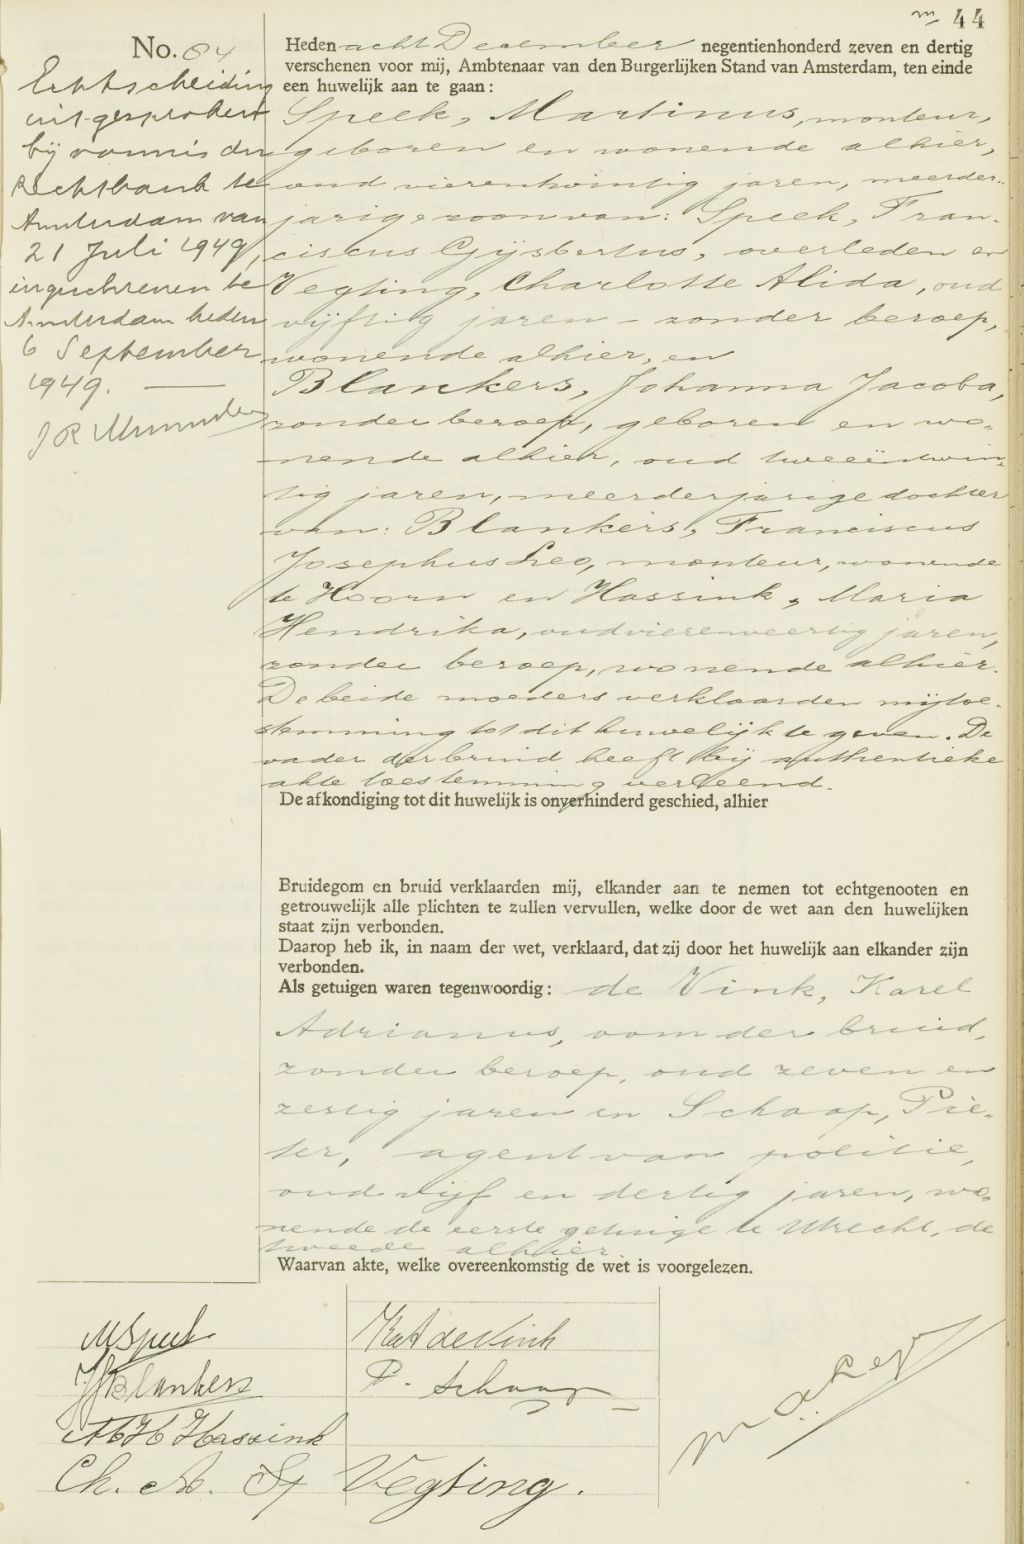 m 44
No. 84
Echtscheiding
uitgesproken
bij vonnis der
Rechtbank te
Amsterdam van
21 Juli 1949,
ingeschreven te
Amsterdam heden
6 September
1949.
J R
Heden acht December negentienhonderd zeven en dertig
verschenen voor mij, Ambtenaar van den Burgerlijken Stand van Amsterdam, ten einde
een huwelijk aan te gaan:
Speek, Martinus, monteur,
geboren en wonende alhier,
oud vierentwintig jaren, meerder-
jarige zoon van: Speek, Fran-
ciscus Gijsbertus, overleden en
Vegting, Charlotte Alida, oud
vijftig jaren - zonder beroep,
wonende alhier, en
Blankers, Johanna Jacoba,
zonder beroep, geboren en wo-
nende alhier, oud tweeëntwin-
tig jaren, meerderjarige dochter
van: Blankers, Franciscus
Josephus Leo, monteur, wonende
te Hoorn en Hassink, Maria
Hendrika, oud vierenveertig jaren,
zonder beroep, wonende alhier.
De beide moeders verklaarden mij toe-
stemming tot dit huwelijk te geven. De
vader der bruid heeft bij authentieke
akte toestemming verleend.
De afkondiging tot dit huwelijk is onverhinderd geschied, alhier
Bruidegom en bruid verklaarden mij, elkander aan te nemen tot echtgenooten en
getrouwelijk alle plichten te zullen vervullen, welke door de wet aan den huwelijken
staat zijn verbonden.
Daarop heb ik, in naam der wet, verklaard, dat zij door het huwelijk aan elkander zijn
verbonden.
Als getuigen waren tegenwoordig: de Vink, Karel
Adrianus, oom der bruid,
zonder beroep, oud zeven en
zestig jaren en Schaap, Pie-
ter, agent van politie,
oud vijf en dertig jaren, wo-
nende de eerste getuige te Utrecht, de
tweede alhier.
Waarvan akte, welke overeenkomstig de wet is voorgelezen.
M Speek
J J Blankers
M H Hassink
Ch. A. Sp Vegting.
K A de Vink
P. Schaap